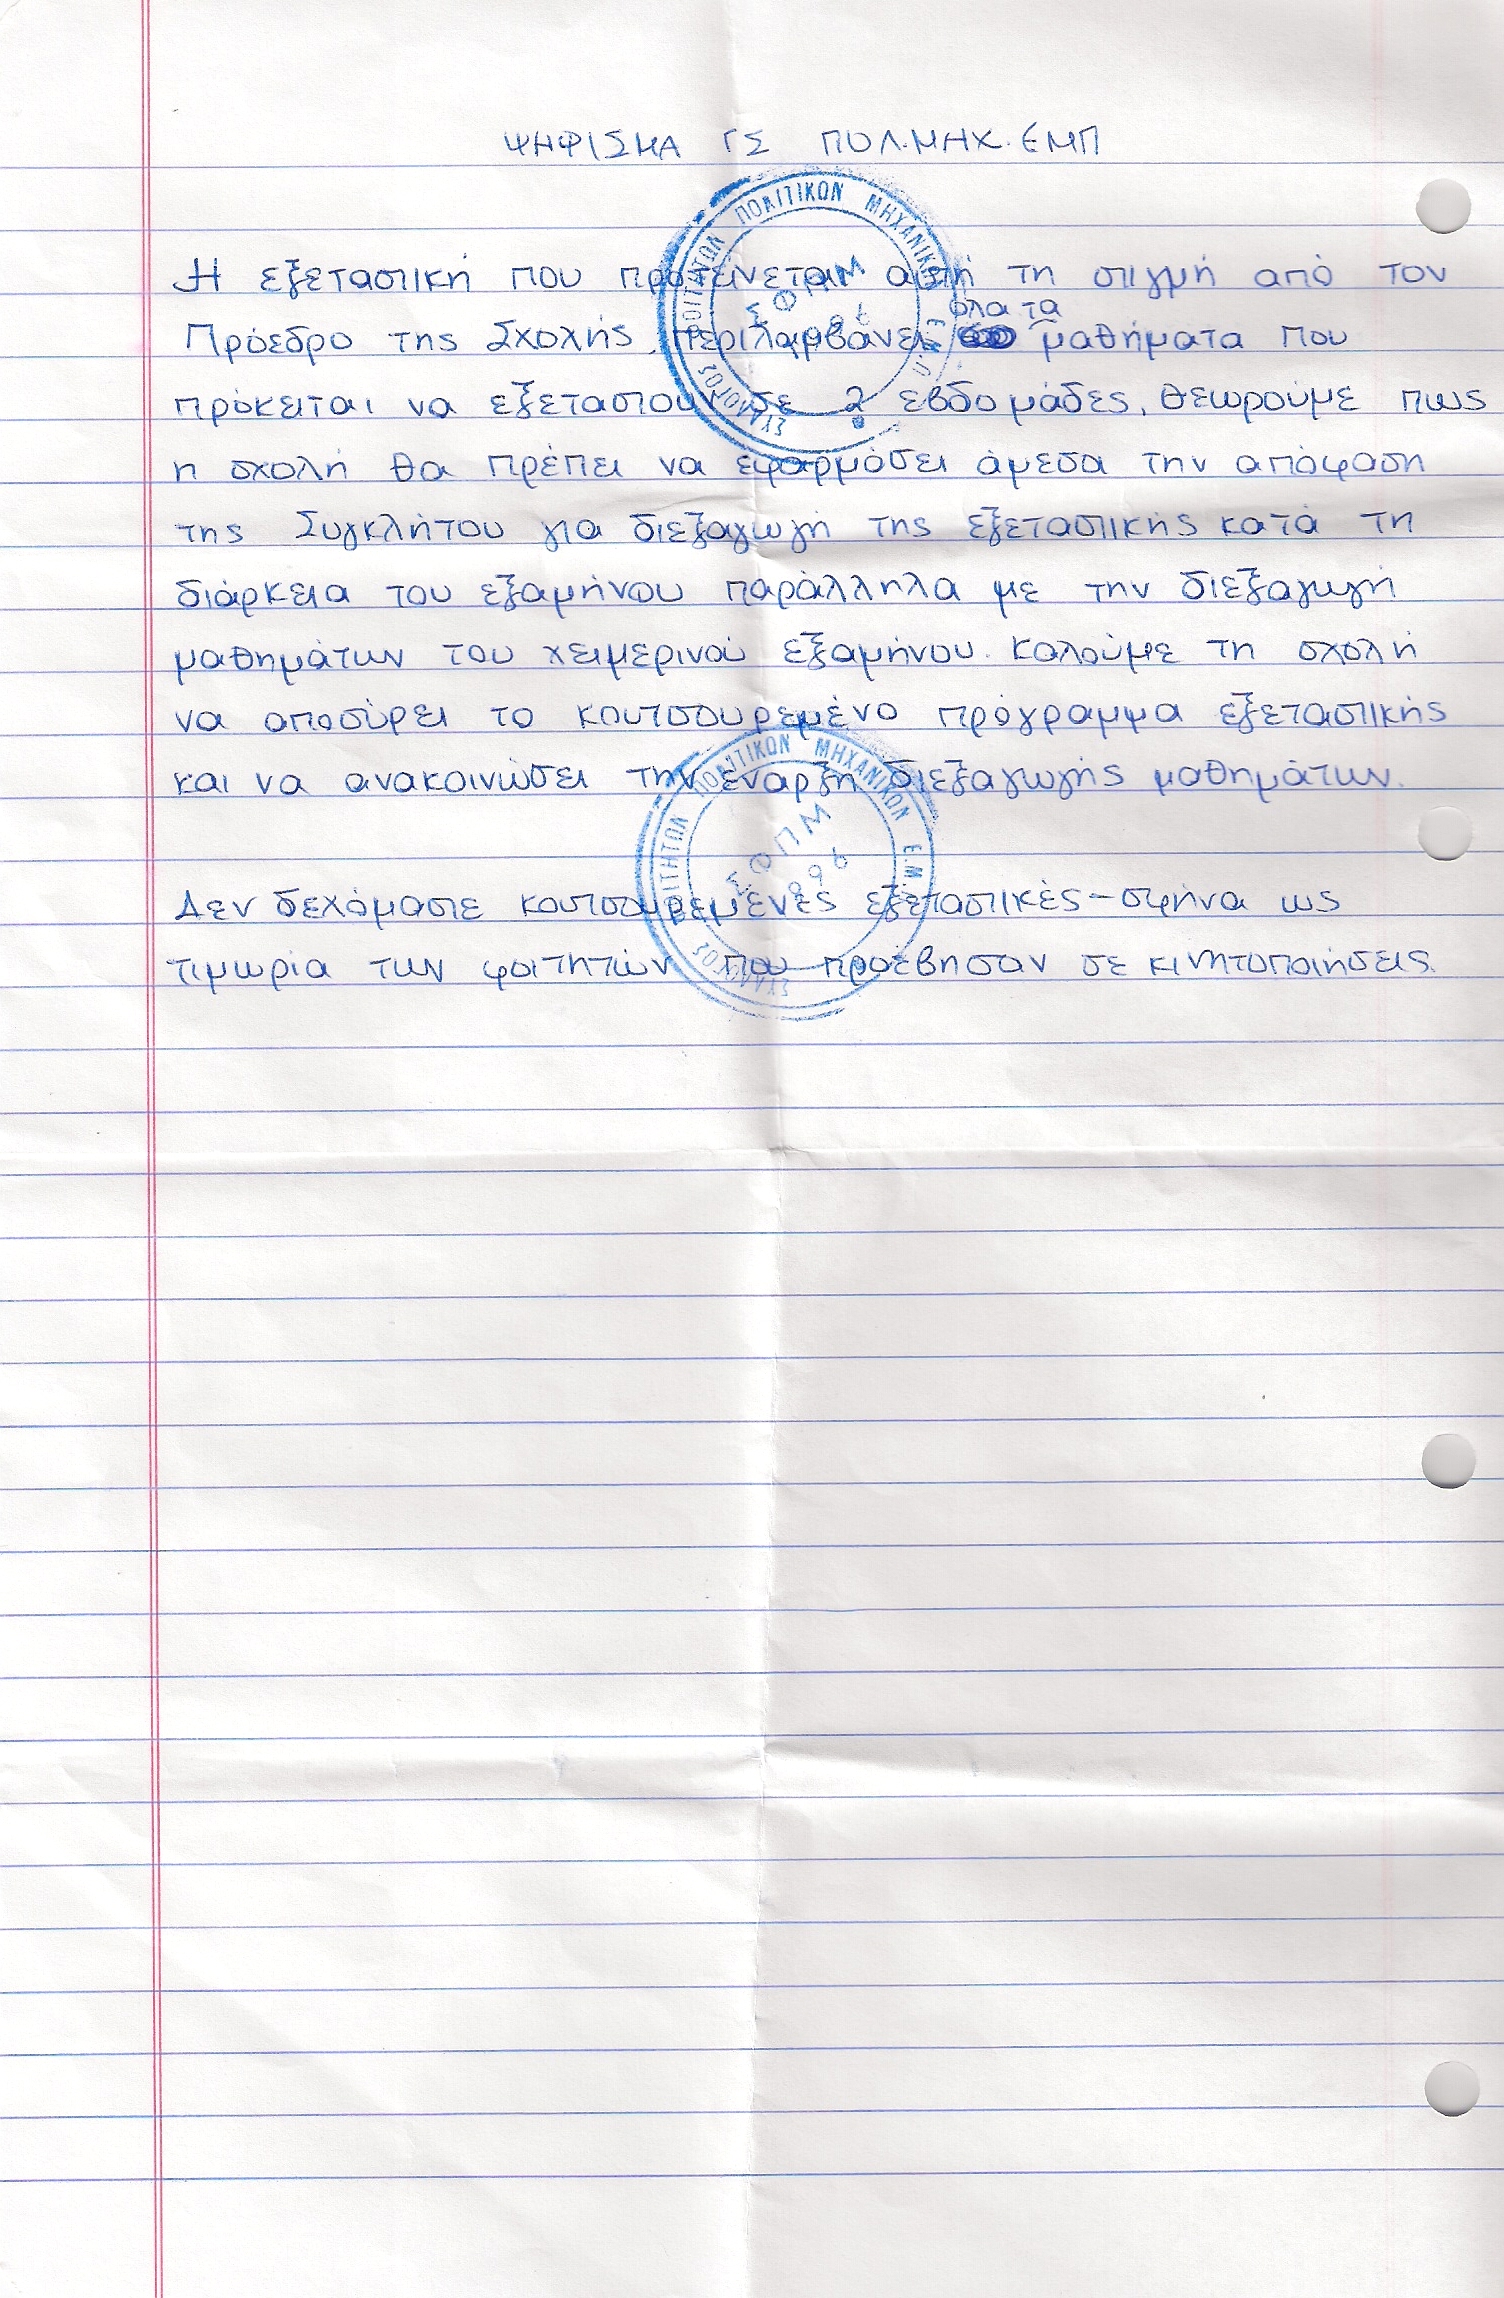 ΨΗΦΙΣΜΑ ΓΣ ΠΟΛ.ΜΗΧ. ΕΜΠ
ΣΥΛΛΟΓΟΣ ΦΟΙΤΗΤΩΝ ΠΟΛΙΤΙΚΩΝ ΜΗΧΑΝΙΚΩΝ
ΣΦΠΜ
Η εξεταστική που προτείνεται αυτή τη στιγμή από τον
όλα τα
Πρόεδρο της Σχολής, περιλαμβάνει μαθήματα που
πρόκειται να εξεταστούν σε 2 εβδομάδες. Θεωρούμε πως
η σχολή θα πρέπει να εφαρμόσει άμεσα την απόφαση
της Συγκλήτου για διεξαγωγή της εξεταστικής κατά τη
διάρκεια του εξαμήνου παράλληλα με την διεξαγωγή
μαθημάτων του χειμερινού εξαμήνου. Καλούμε τη σχολή
να αποσύρει το κουτσουρεμένο πρόγραμμα εξεταστικής
και να ανακοινώσει την έναρξη διεξαγωγής μαθημάτων.
ΣΥΛΛΟΓΟΣ ΦΟΙΤΗΤΩΝ ΠΟΛΙΤΙΚΩΝ ΜΗΧΑΝΙΚΩΝ Ε.Μ.
ΣΦΠΜ
Δεν δεχόμαστε κουτσουρεμένες εξεταστικές-σφήνα ως
τιμωρία των φοιτητών που προέβησαν σε κινητοποιήσεις.